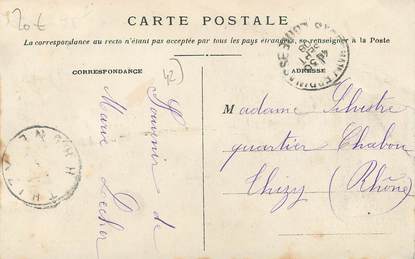 20€
CARTE POSTALE
La correspondance au recto n'étant pas acceptée par tous les pays étrangers, se renseigner à la Poste
CORRESPONDANCE
ADRESSE
42
Souvenir de
Marie Decher
Madame Silvestre
quartier Chabou
Thizy (Rhône)